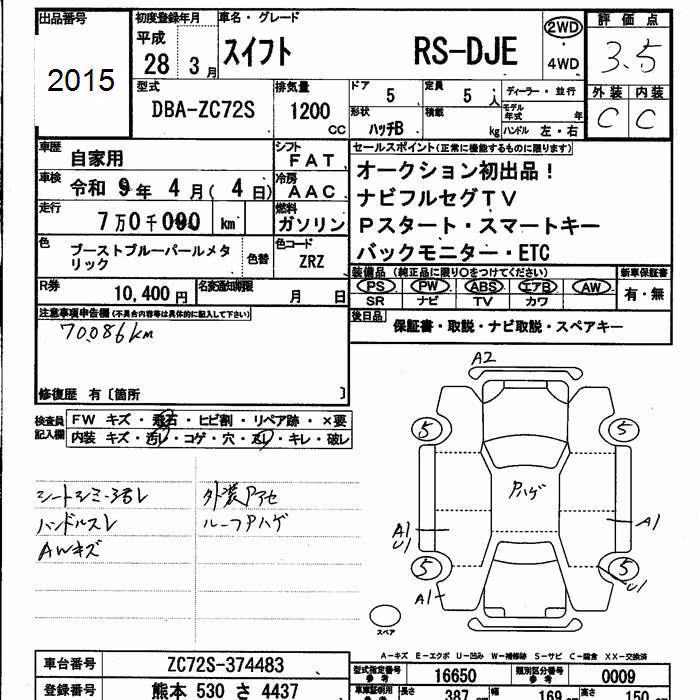 出品番号
2015
初度登録年月
平成
28 3月
車名・グレード
スイフト RS-DJE
2WD
4WD
評価点
3.5
外装 内装
C C
型式
DBA-ZC72S
排気量
1200
CC
ドア
5
定員
5人
形状
ハッチB
積載
kg
ディーラー・並行
モデル年式 年
ハンドル 左・右
車歴
自家用
シフト
FAT
車検
令和 9年 4月(4日)
冷房
AAC
走行
7万0千090 km
燃料
ガソリン
色
ブーストブルーパールメタリック
色替
色コード
ZRZ
セールスポイント(正常に機能するものに限ります)
オークション初出品!
ナビフルセグTV
Pスタート・スマートキー
バックモニター・ETC
R券
10,400円
名変通知期限
月 日
装備品 (純正品に限り○をつけてください)
PS PW ABS エアB AW
SR ナビ TV カワ
新車保証書
有・無
後日品
保証書・取説・ナビ取説・スペアキー
注意事項申告欄(不具合内容等は具体的に記入して下さい)
70086km
修復歴 有〔箇所 〕
検査員記入欄
FW キズ・飛石・ヒビ割・リペア跡・×要
内装 キズ・汚レ・コゲ・穴・スレ・キレ・破レ
シートシミ・スレ
ハンドルスレ
AWキズ
外装Pアセ
ルーフPハゲ
A2
5 5
Pハゲ
A1
U1
A1
5 5
A1
U1
スペア
A-キズ E-エクボ U-凹み W-補修跡 S-サビ C-腐食 XX-交換済
車台番号
ZC72S-374483
登録番号
熊本 530 さ 4437
型式指定番号
16650
類別区分番号
0009
長さ
387 cm
幅
169 cm
高さ
150 cm